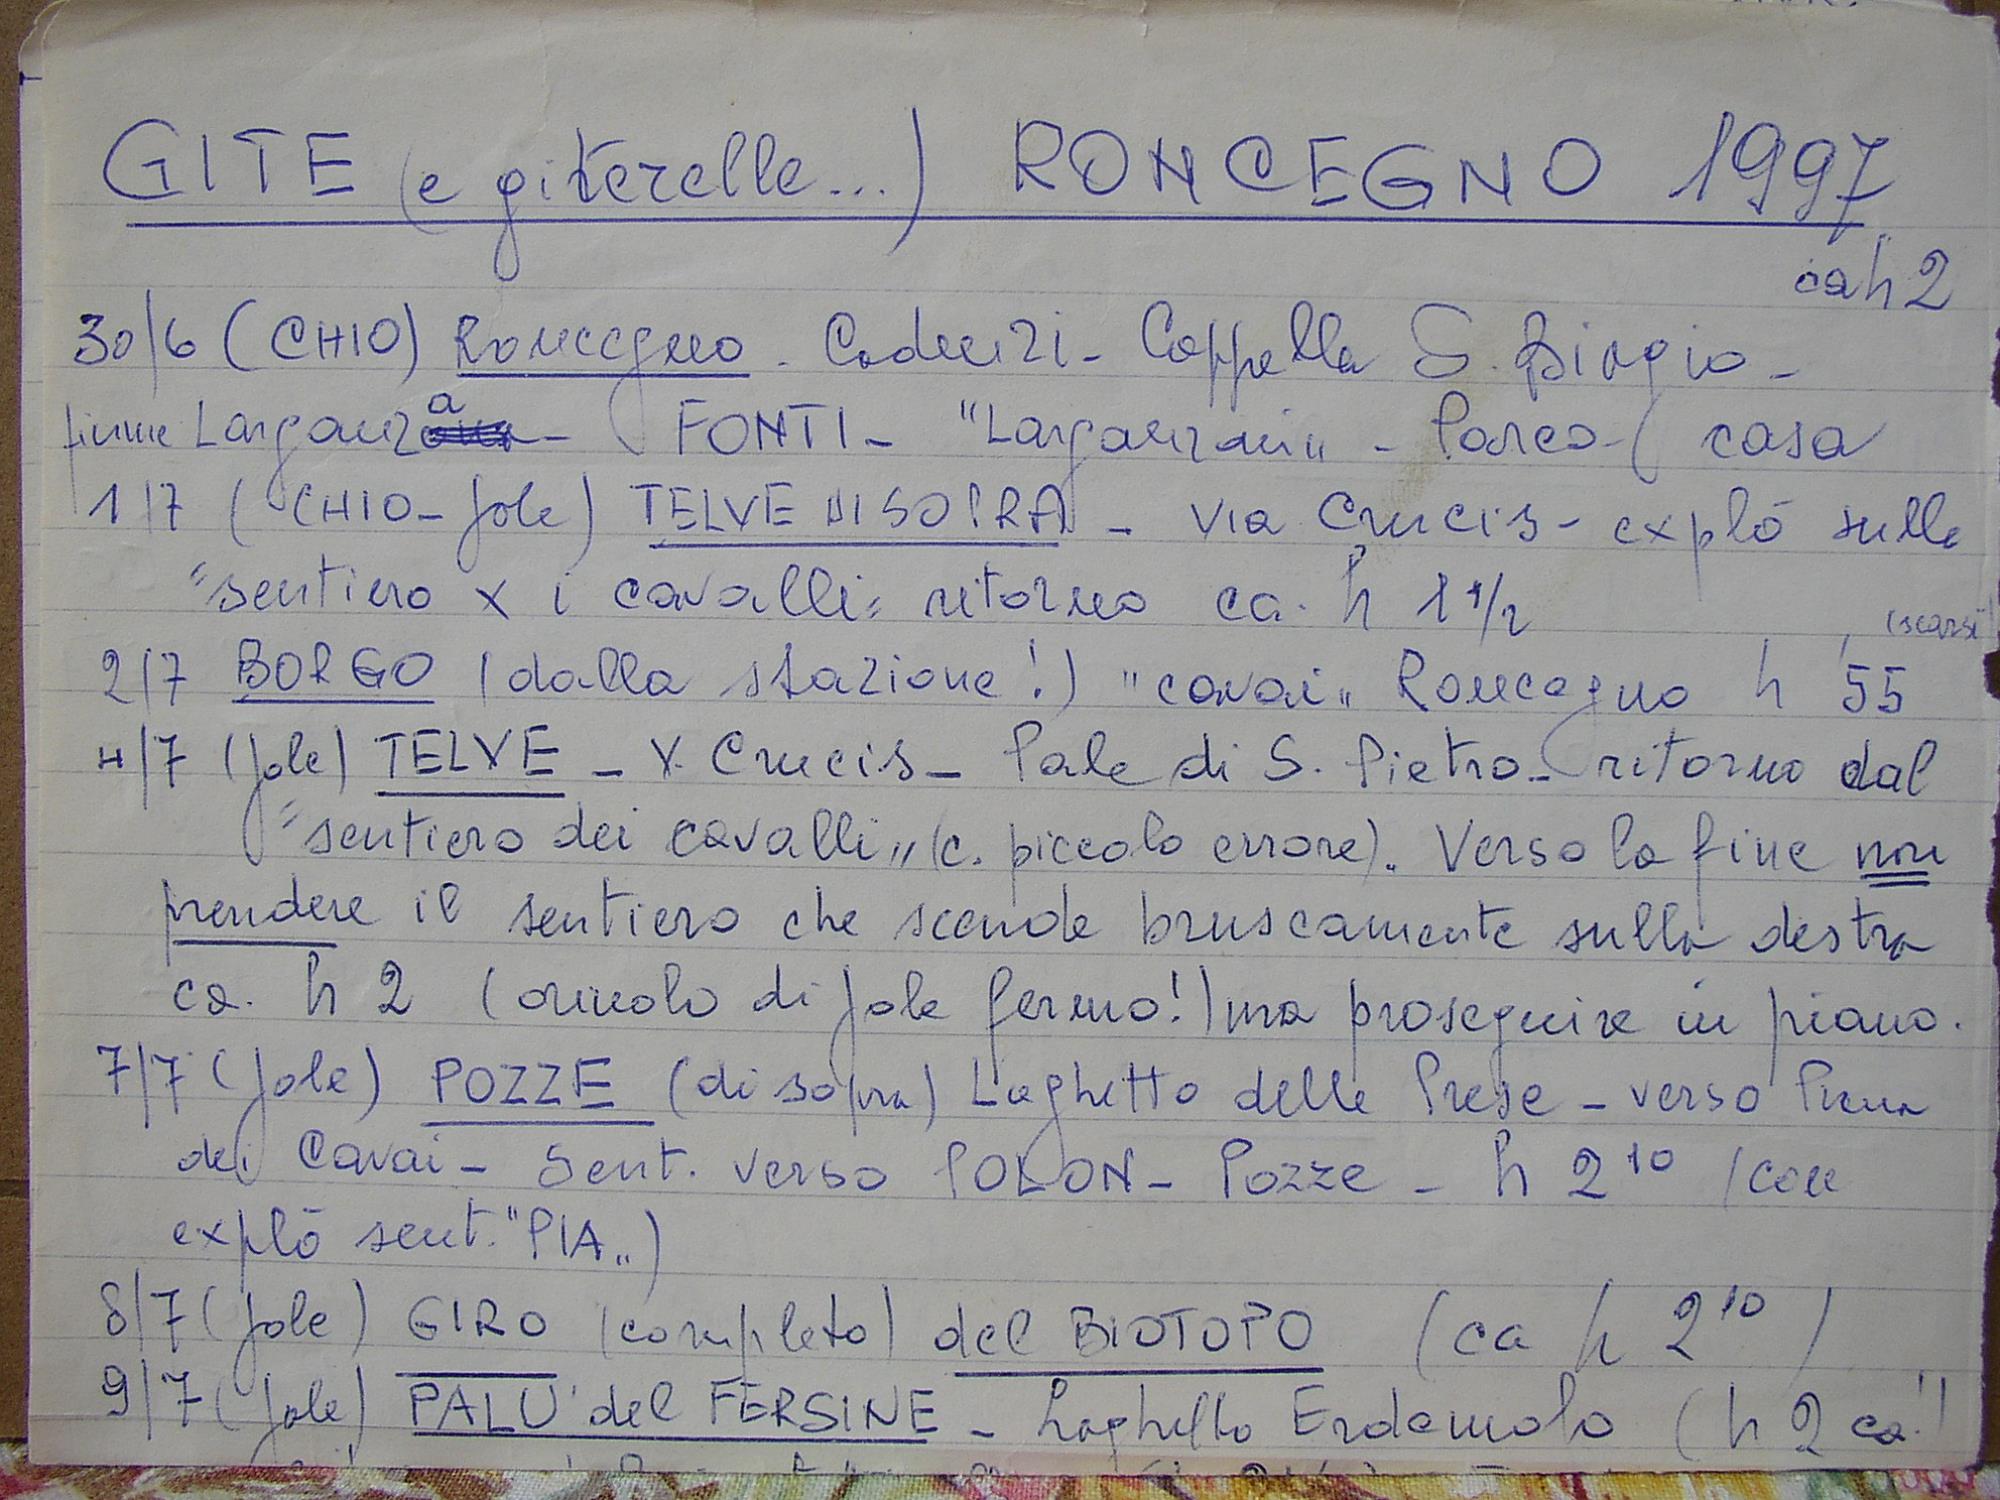 GITE (e giterelle...) RONCEGNO 1997
ca h 2
30/6 (CHIO) Roncegno - Cadenzi - Cappella S. Biagio -
fiume Larganza - FONTI - "Larganzai" - Parco - casa
1/7 (CHIO - Jole) TELVE DI SOPRA - via Crucis - explò sulle
"sentiero x i cavalli" ritorno ca. h 1 1/2
(scarsi)
2/7 BORGO (dalla stazione!) "cavai" Roncegno h 55'
4/7 (Jole) TELVE - V. Crucis - Pale di S. Pietro - ritorno dal
"sentiero dei cavalli" (c. piccolo errore). Verso la fine non
prendere il sentiero che scende bruscamente sulla destra
ca. h 2 (oriuolo di Jole fermo!) ma proseguire in piano.
7/7 (Jole) POZZE (di sopra) Laghetto delle Prese - verso
dei Cavai - Sent. verso POLON - Pozze - h 2 10 (con
explò sent. "PIA")
8/7 (Jole) GIRO (completo) del BIOTOPO (ca h 2 10)
9/7 (Jole) PALU' del FERSINE - Laghetto Erdemolo (h 2 ca!!